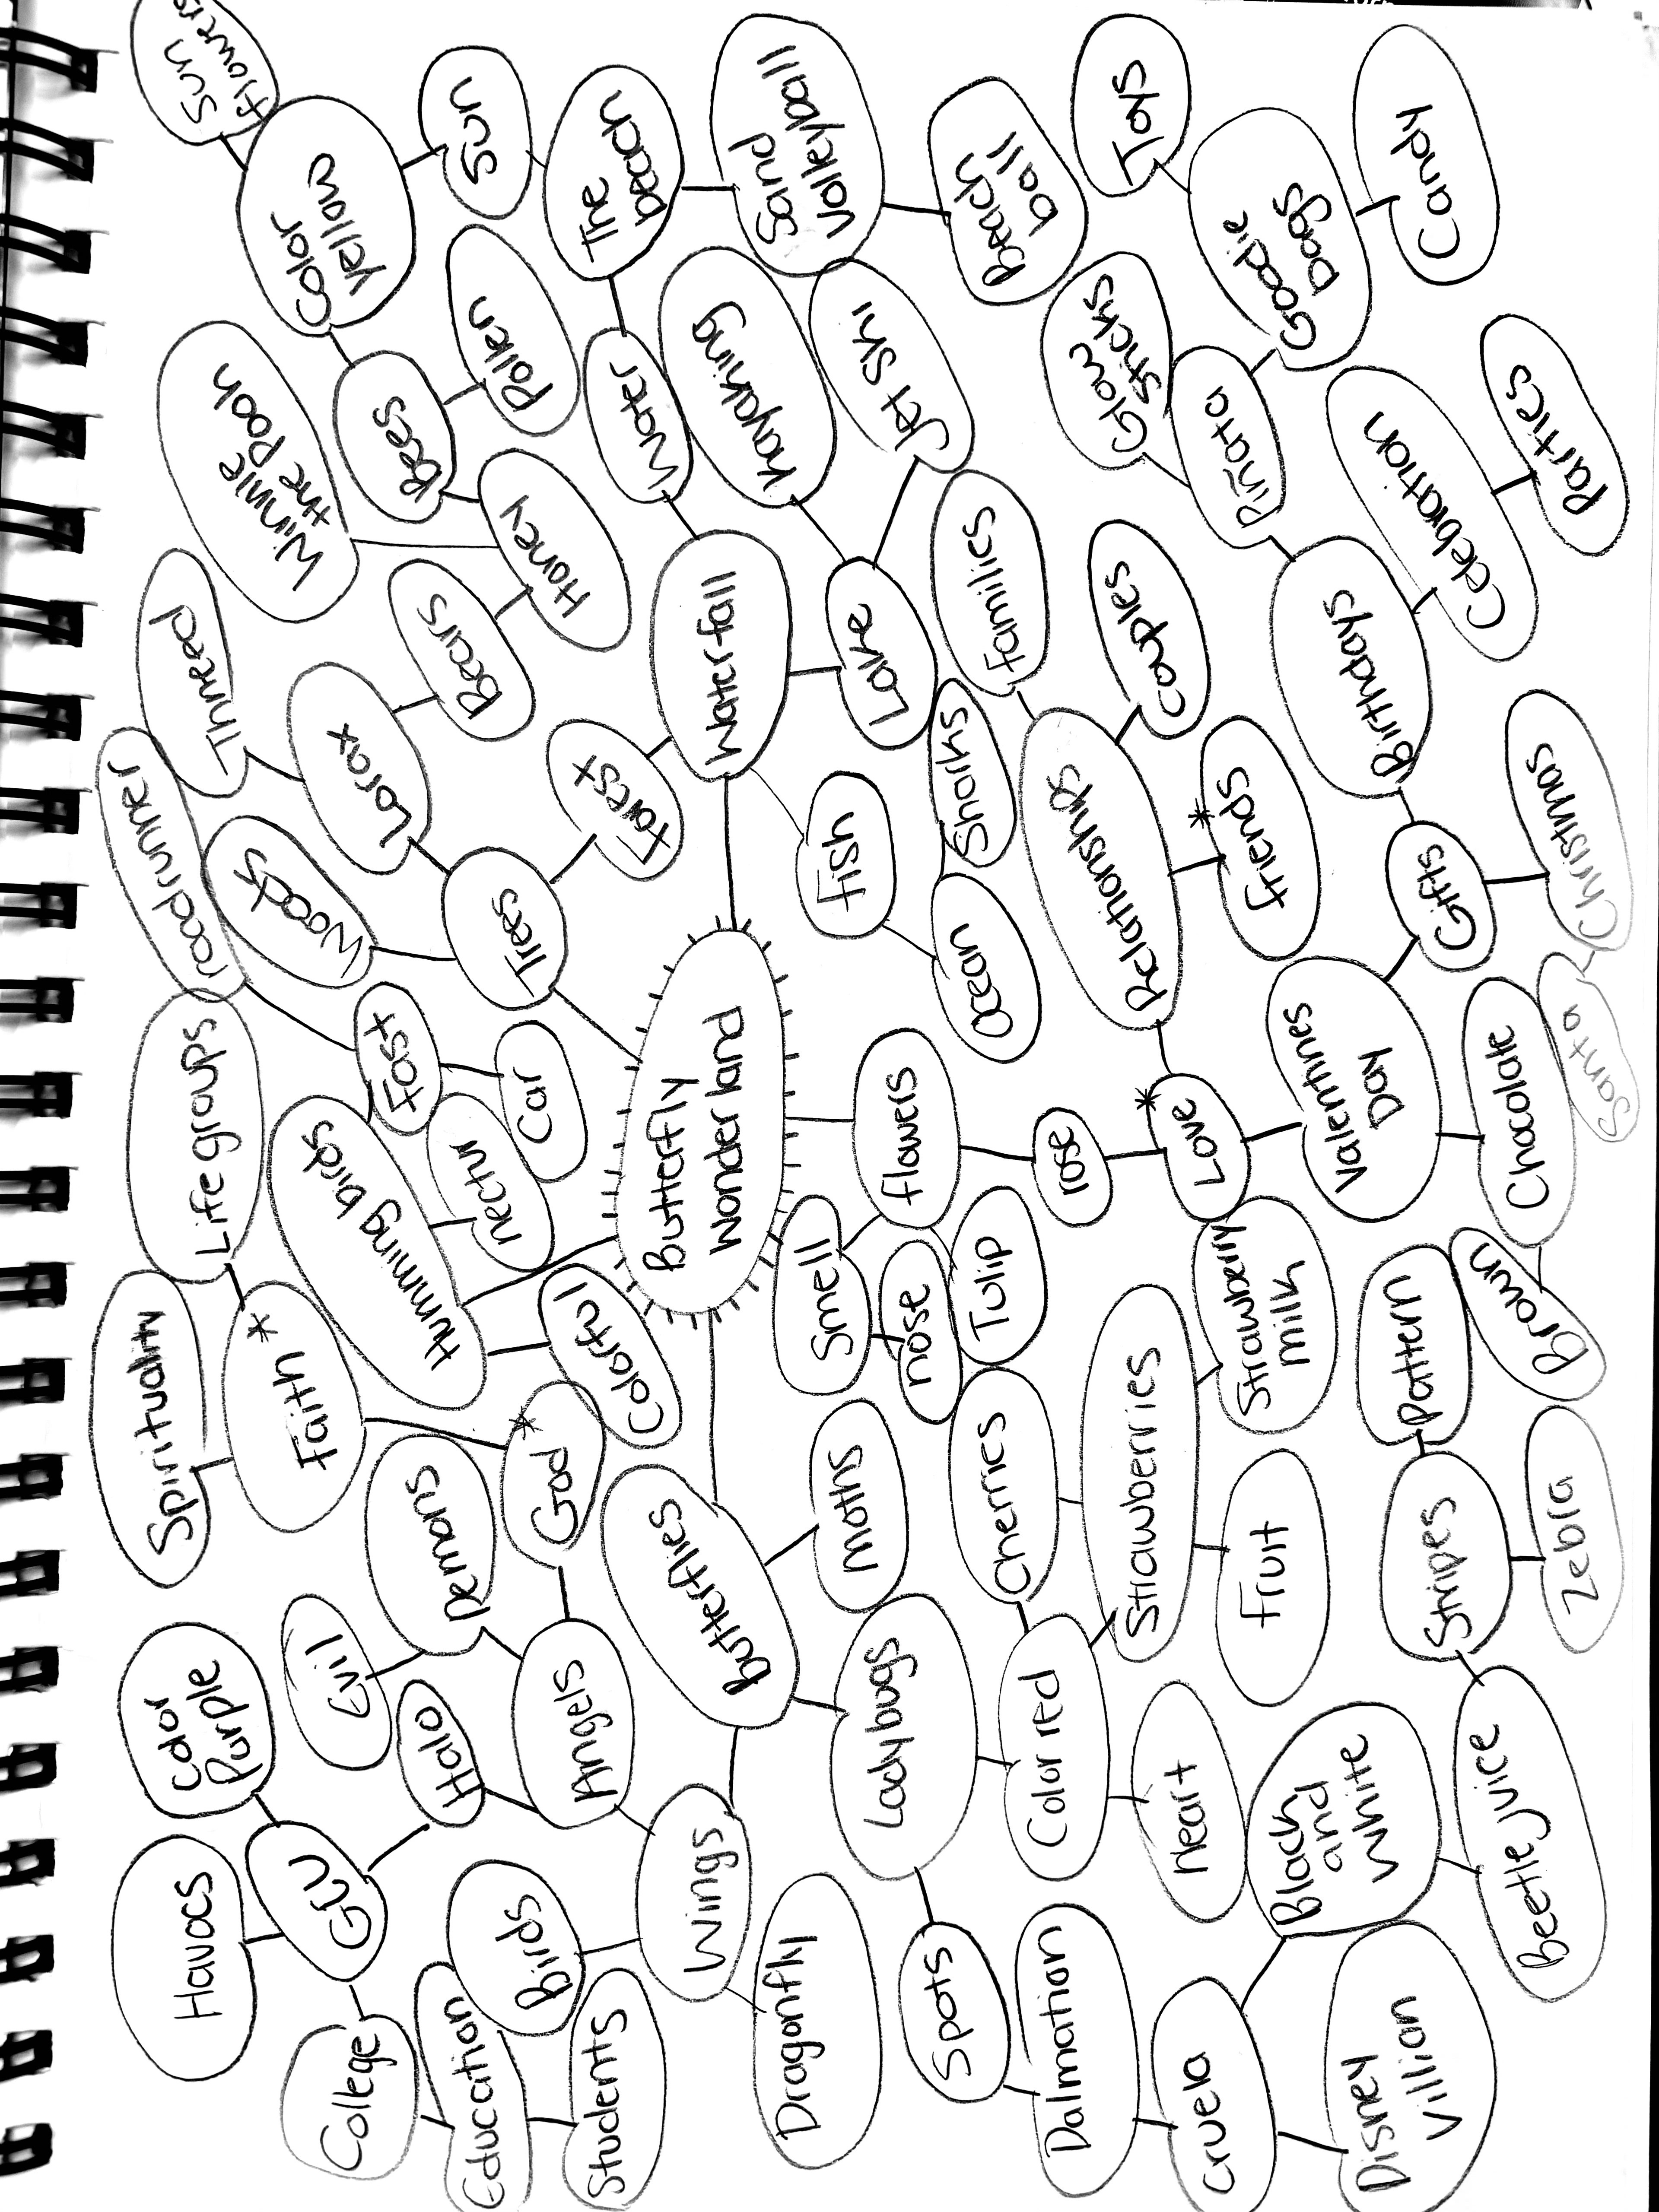 Havocs
Color
Purple
Spirituality
Life groups
roadrunner
Thneed
Winnie
the Pooh
Sun
flowers
College
GCU
Evil
Faith *
Woods
Lorax
Color
yellow
Education
Birds
Halo
Demons
Humming birds
Fast
Bears
Bees
Sun
Students
Angels
God *
nectur
Car
Trees
Honey
Pollen
Colorful
Forest
The
beach
Wings
Butterflies
Butterfly
Wonderland
Waterfall
Water
Kayaking
Dragonfly
Moths
Smell
Fish
Lake
Jet Ski
Sand
Valleyball
Ladybugs
nose
flowers
Spots
Cherries
Tulip
Ocean
Sharks
families
Beach
ball
Dalmation
Color red
Strawberries
rose
Relationships
Couples
Glow
sticks
Toys
Cruela
Heart
Fruit
Strawberry
milk
Love *
friends *
Piñata
Goodie
bags
Disney
Villian
Black
and
White
Valentines
Day
Birthdays
Celebration
Candy
Beetle Juice
Stripes
Pattern
Chocolate
Gifts
Parties
Zebra
Brown
Santa
Christmas